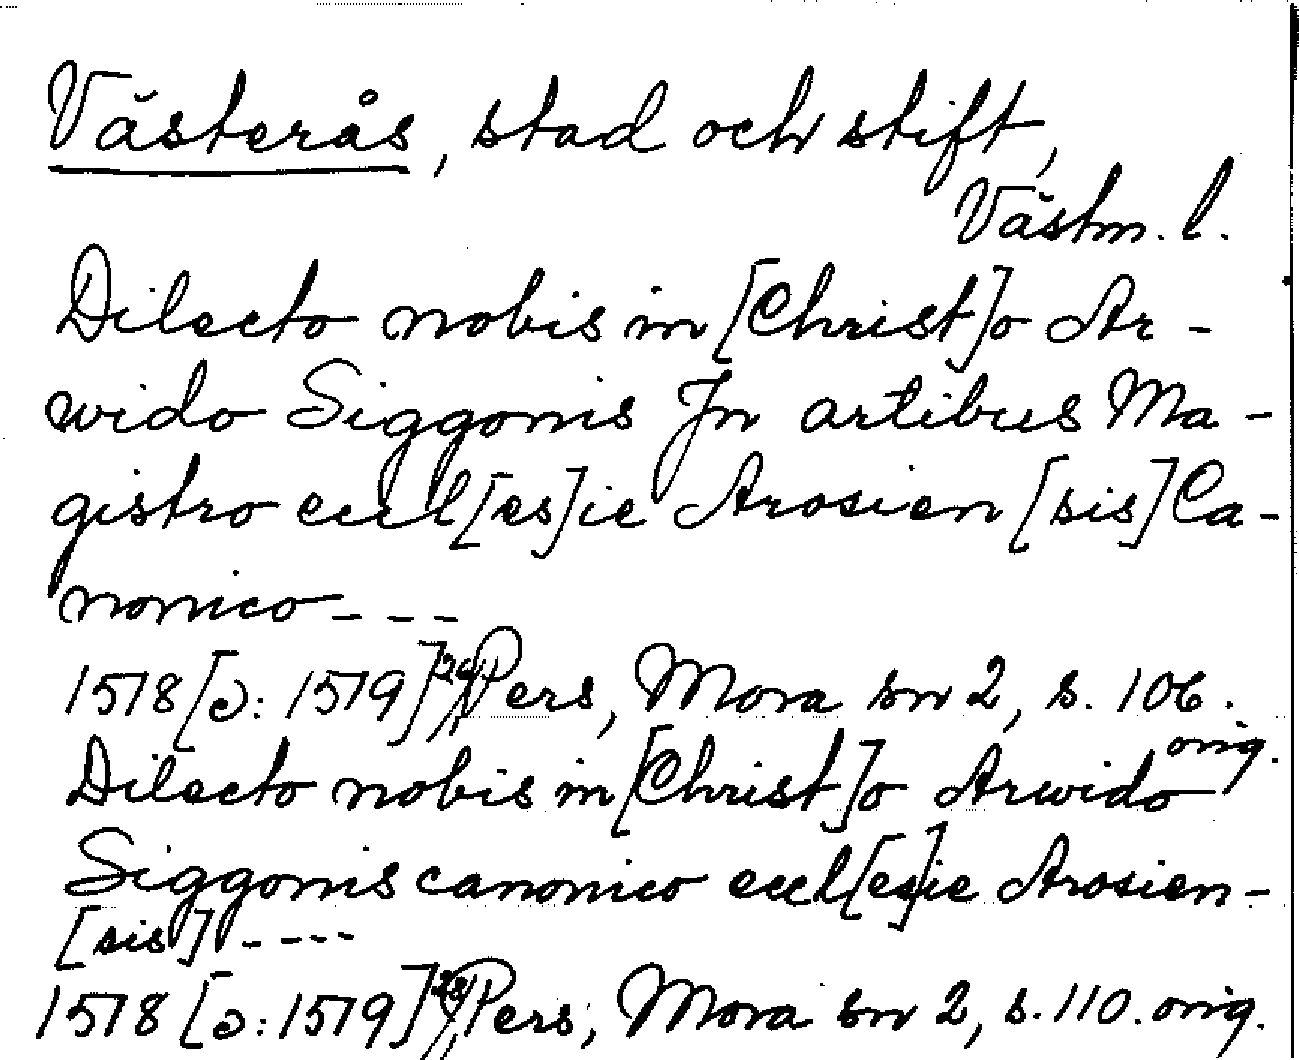 Västerås, stad och stift,
Västm. l.
Dilecto nobis in [Christ]o Ar-
wido Siggonis Jn artibus Ma-
gistro eccl[es]ie Arosien[sis] Ca-
nonico - - -
1518 [ɔ: 1519] Pers, Mora sn 2, s. 106.
orig.
Dilecto nobis in [Christ]o Arwido
Siggonis canonico eccl[es]ie Arosien-
[sis] - - - -
1518 [ɔ: 1519] Pers, Mora sn 2, s. 110. orig.